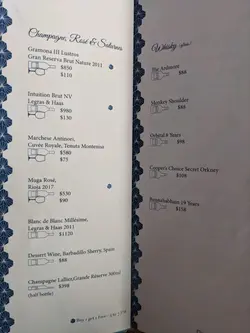 Champagne, Rosé & Sauternes
Gramona III Lustros
Gran Reserva Brut Nature 2011
$650
$110
Intuition Brut NV
Legras & Haas
$980
$130
Marchese Antinori,
Cuvée Royale, Tenuta Montenisa
$580
$75
Muga Rosé,
Rioja 2017
$530
$90
Blanc de Blanc Millésime,
Legras & Haas 2011
$1120
Dessert Wine, Barbadillo Sherry, Spain
$88
Champagne Lallier, Grande Réserve
$398
(half bottle)
Buy 1 get 1 Free
Whisky
The Ardmore
$88
Monkey Shoulder
$88
Years
$98
Cooper's Choice Secret Orkney
$108
Bunnahabhain 19 Years
$158